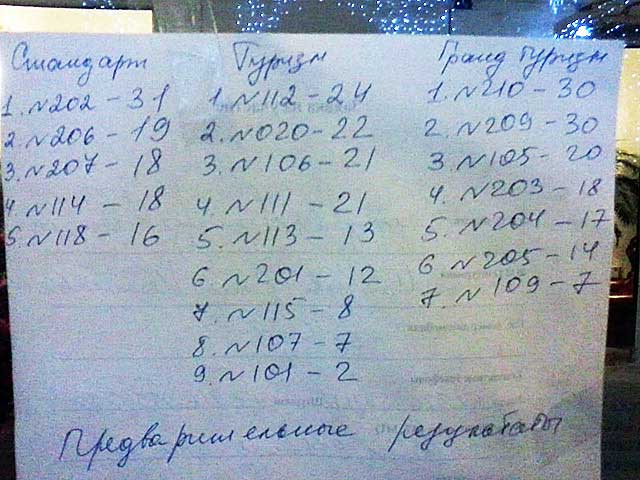 Стандарт
1. №202 - 31
2. №206 - 19
3. №207 - 18
4 №114 - 18
5. №118 - 16
Туризм
1. №112 - 24
2. №020 - 22
3. №106 - 21
4. №111 - 21
5. №113 - 13
6 №201 - 12
7. №115 - 8
8. №107 - 7
9. №101 - 2
Гранд Туризм
1. №210 - 30
2. №209 - 30
3 №105 - 20
4. №203 - 18
5. №204 - 17
6 №205 - 14
7. №109 - 7
Предварительные результаты